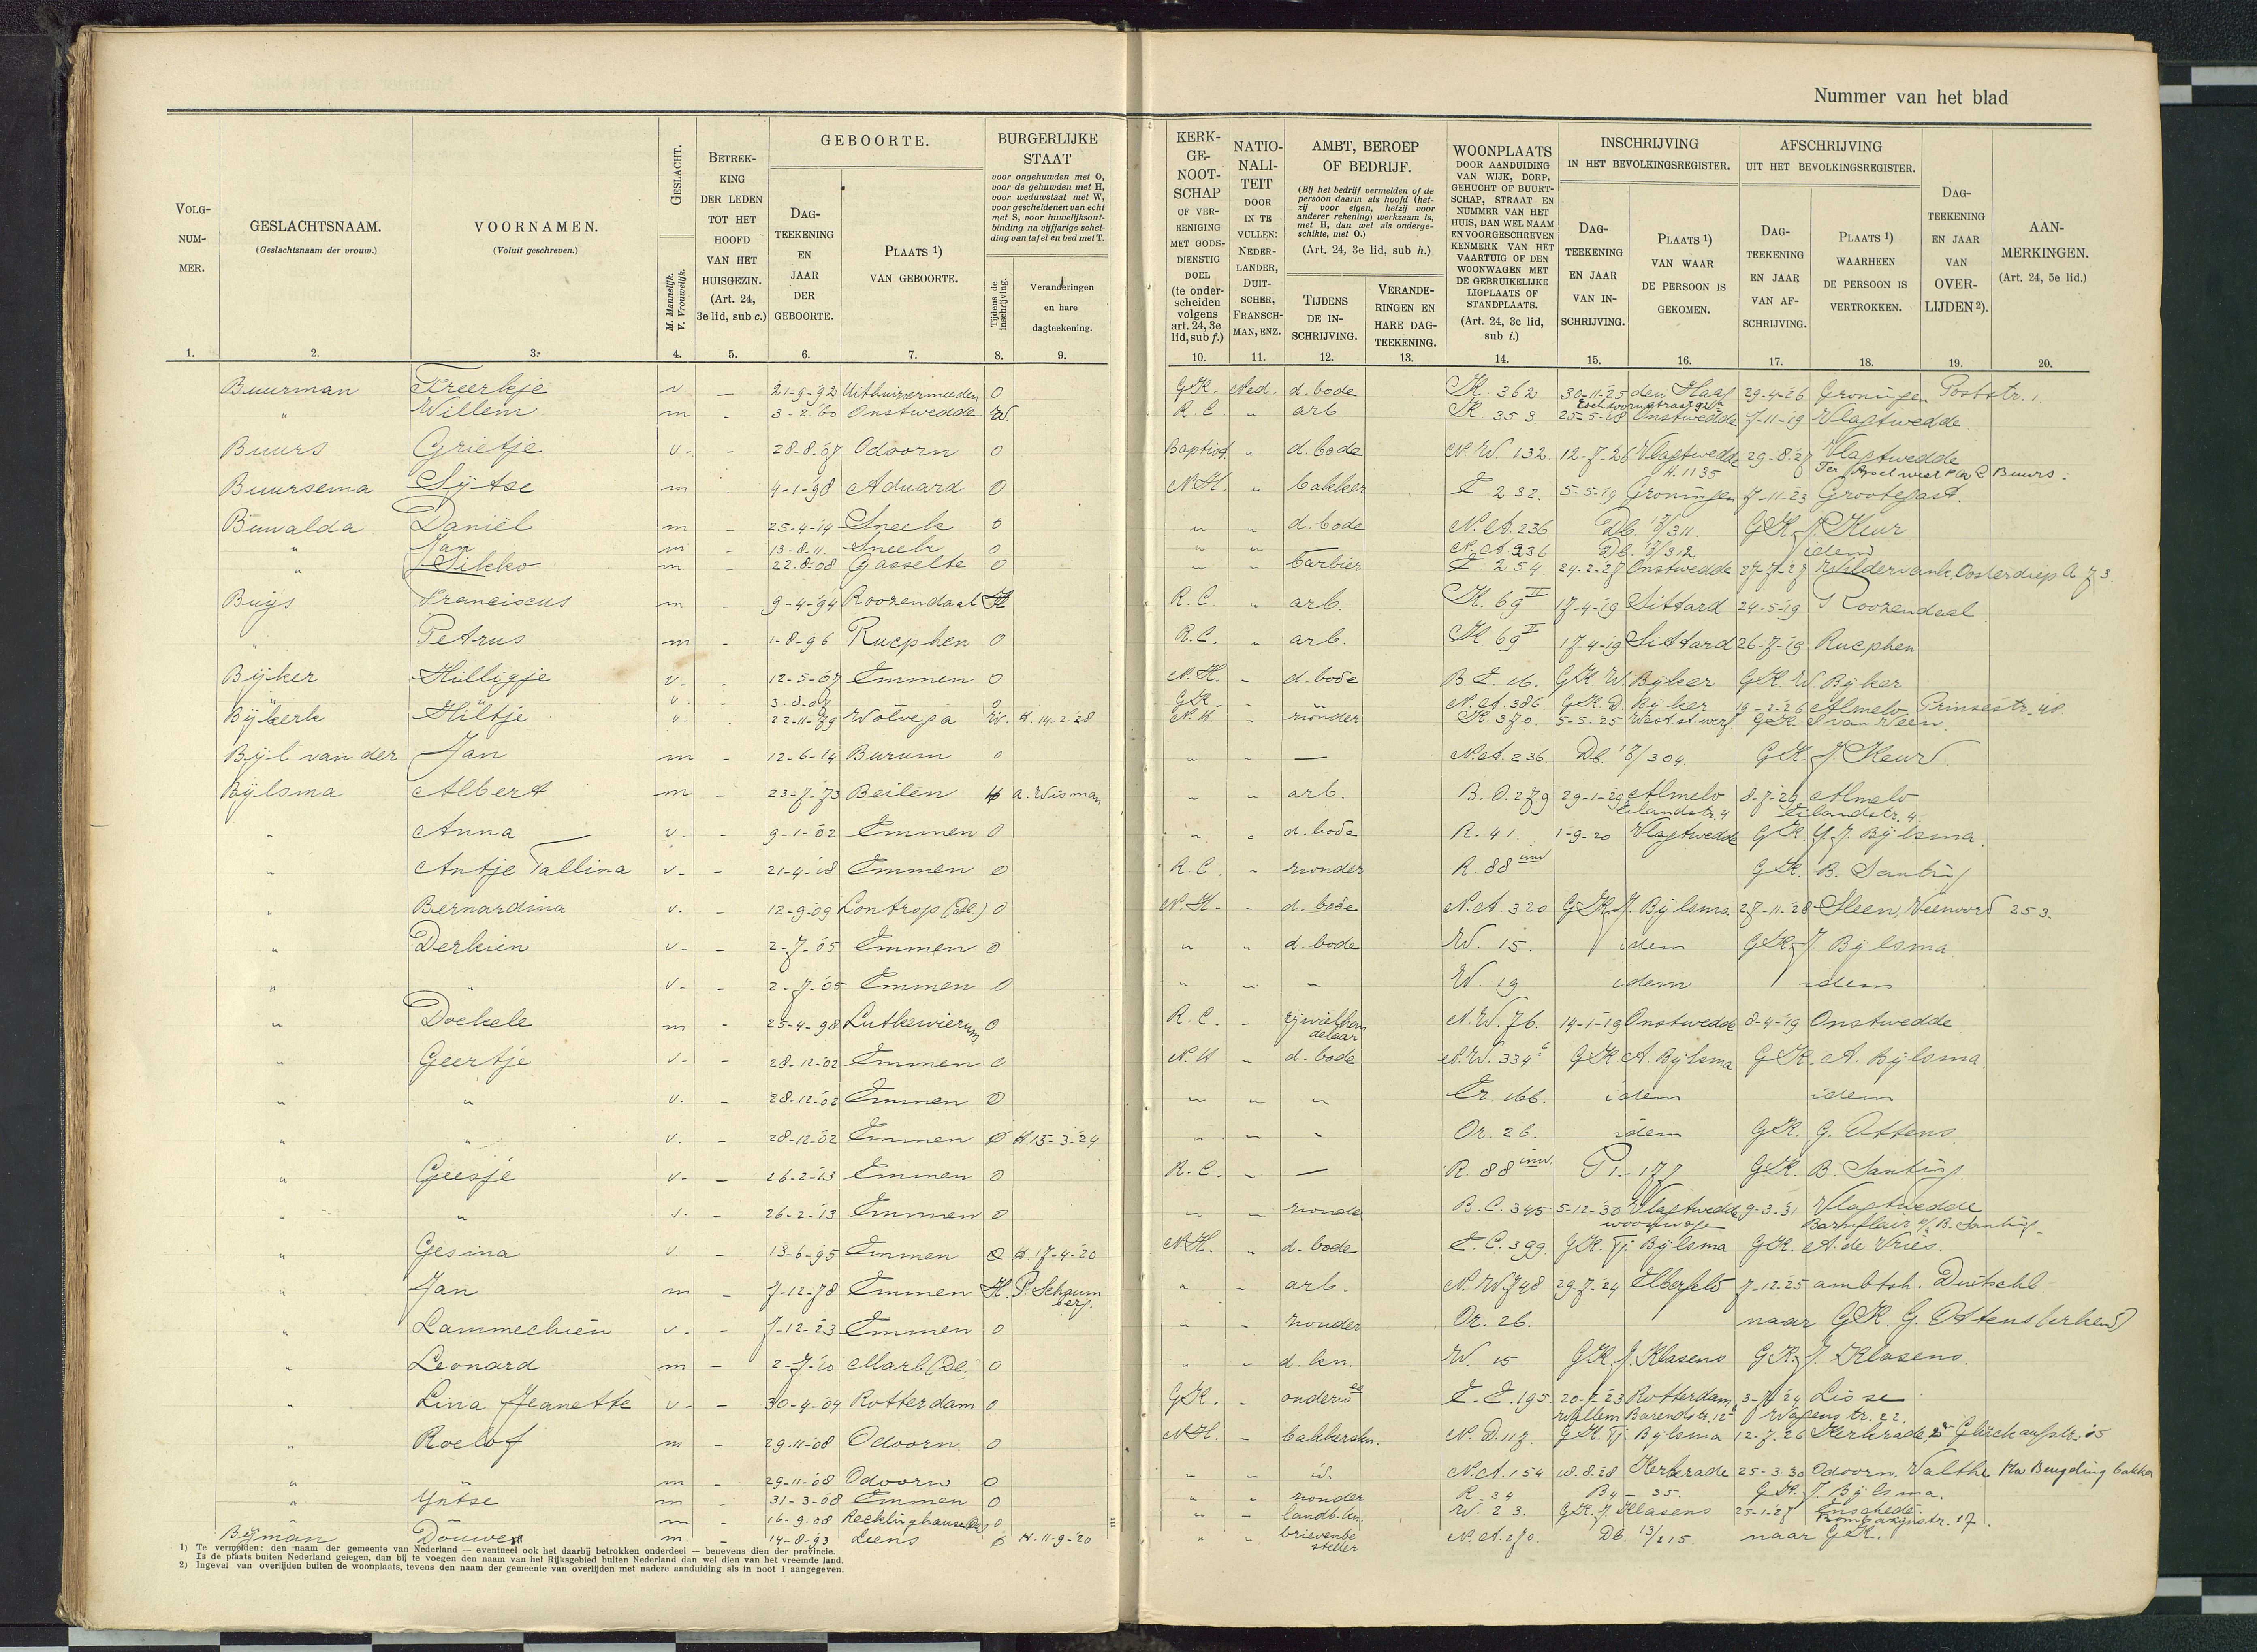 Nummer van het blad
VOLG-NUM-MER. GESLACHTSNAAM. (Geslachtsnaam der vrouw.) VOORNAMEN. (Voluit geschreven.) GESLACHT. M. Mannelijk. V. Vrouwelijk. BETREK-KING DER LEDEN TOT HET HOOFD VAN HET HUISGEZIN. (Art. 24, 3e lid, sub c.) GEBOORTE. DAG-TEEKENING EN JAAR DER GEBOORTE. PLAATS 1) VAN GEBOORTE. BURGERLIJKE STAAT voor ongehuwden met O, voor de gehuwden met H, voor weduwstaat met W, voor gescheidenen van echt met S, voor huwelijksont-binding na vijfjarige schei-ding van tafel en bed met T. Tijdens de inschrijving. Veranderingen en hare dagteekening.
KERK-GE-NOOT-SCHAP OF VER-EENIGING MET GODS-DIENSTIG DOEL (te onder-scheiden volgens art. 24, 3e lid, sub f.) NATIO-NALI-TEIT DOOR IN TE VULLEN: NEDER-LANDER, DUIT-SCHER, FRANSCH-MAN, ENZ. AMBT, BEROEP OF BEDRIJF. (Bij het bedrijf vermelden of de persoon daarin als hoofd (het-zij voor eigen, hetzij voor anderer rekening) werkzaam is, met H, dan wel als onderge-schikte, met O.) (Art. 24, 3e lid, sub h.) TIJDENS DE IN-SCHRIJVING. VERANDE-RINGEN EN HARE DAG-TEEKENING. WOONPLAATS DOOR AANDUIDING VAN WIJK, DORP, GEHUCHT OF BUURT-SCHAP, STRAAT EN NUMMER VAN HET HUIS, DAN WEL NAAM EN VOORGESCHREVEN KENMERK VAN HET VAARTUIG OF DEN WOONWAGEN MET DE GEBRUIKELIJKE LIGPLAATS OF STANDPLAATS. (Art. 24, 3e lid, sub i.) INSCHRIJVING IN HET BEVOLKINGSREGISTER. DAG-TEEKENING EN JAAR VAN IN-SCHRIJVING. PLAATS 1) VAN WAAR DE PERSOON IS GEKOMEN. AFSCHRIJVING UIT HET BEVOLKINGSREGISTER. DAG-TEEKENING EN JAAR VAN AF-SCHRIJVING. PLAATS 1) WAARHEEN DE PERSOON IS VERTROKKEN. DAG-TEEKENING EN JAAR VAN OVER-LIJDEN 2). AAN-MERKINGEN. (Art. 24, 5e lid.)
1. 2. 3. 4. 5. 6. 7. 8. 9. 10. 11. 12. 13. 14. 15. 16. 17. 18. 19. 20.
Buurman Freerkje v. - 21-9-'92 Uithuizermeeden O G.K. Ned. d. bode K. 362. 30-11-'25 den Haag 29-4-'26 Groningen Poststr. 1.
" Willem m - 3-2-'60 Onstwedde W. R.C. " arb. K. 353. 25-5-'18 Onstwedde 7-11-'19 Vlagtwedde.
Buurs Grietje v. - 28-8-'07 Odoorn O Baptist " d. bode N.W. 132. 12-7-26 Vlagtwedde H. 1135 29-8-'27 Vlagtwedde Ter Apel Buurs.
Buursema Sijtse m 4-1-'98 Aduard O N.H. " bakker E 232. 5-5-'19 Groningen 7-11-'23 Grootegast.
Buwalda Daniël m - 25-4-'14 Sneek O " " d. bode N.A. 236. Db. 17/311. GK. J. Keur
" Jan m - 13-8-11. Sneek O " " N.A. 236 Db. 17/312 idem
" Sikko m - 22-8-'08 Gasselte O " " barbier E. 254. 24-2-'27 Onstwedde 27-7-'27 Wildervank, Oosterdiep A 73.
Buijs Franciscus m - 9-4-'94 Roozendaal H R.C. " arb. K. 69 II 17-4-'19 Sittard 24-5-'19 Roozendaal
" Petrus m - 1-8-96 Rucphen O R.C. " arb. K. 69 II 17-4-'19 Sittard 26-7-'19 Rucphen
Bijker Hilligje v. - 12-5-'07 Emmen O N.H. - d. bode B.E. 16. GK. W. Bijker GK. W. Bijker
" " v. 3-8-07 O G.K. N.A. 386. G.K. D. Bijker 19-2-26 Almelo Prinsestr. 48.
Bijkerk Hiltje v. 22-11-'79 Wolvega W. H. 14-2-'28 N.H. - zonder K. 370. 5-5-'25 Westst.werf. GK.
Bijl van der Jan m - 12-6-'14 Burum O " " — N.A. 236. Db. 17/304. GK. J. Keur
Bijlsma Albert m - 23-7-'73 Beilen H A. Wisman " " arb. B.O. 279 29-1-'29 Almelo Eilandstr. 4 8-7-'29 Almelo Eilandstr. 4.
" Anna — v. - 9-1-'02 Emmen O " " d. bode R. 41. 1-9-20 Vlagtwedde GK. Bijlsma.
" Antje Tallina v. - 21-4-'18 Emmen O R.C. " zonder R. 88 inw GK. B. Santing
" Bernardina v. - 12-9-'09 (Dl.) O N.H. - d. bode N.A. 320 GK. J. Bijlsma 27-11-'28 Sleen, Veenoord 253.
" Derkien v. - 2-7-'05 Emmen O " " d. bode W. 15. idem GK. J. Bijlsma
" " v. - 2-7-'05 Emmen O " " " W. 19 idem idem
" Doekele m - 25-4-98 Lutkewierum O R.C. - rijwielhandelaar N.W. 76. 14-1-'19 Onstwedde 8-4-'19 Onstwedde
" Geertje v. - 28-12-02 Emmen O N.H - d. bode N.W. 334 6 GK A. Bijlsma GK. A. Bijlsma.
" " v. - 28-12-'02 Emmen O " " " Er. 166. idem idem
" " v. 28-12-'02 Emmen O H. 15-3-'24 " " " Or. 26. idem GK. G. Attens.
" Geesje v. - 26-2-'13 Emmen O R.C. - — R. 88 inw. P 1-177 GK. B. Santing
" " v. - 26-2-'13 Emmen O " " zonder B.C. 345 5-12-'30 Vlagtwedde woonwagen 9-3-'31 Vlagtwedde Barnflair B. Santing.
" Gesina v. - 13-6-'95 Emmen O H. 17-4-'20 N.H. " d. bode E.C. 399. GK. Tj Bijlsma GK. A. de Vries.
" Jan m - 7-12-'78 Emmen H. P. Schaumberg. " " arb. N.W. 748 29-7-'24 Elberfeld 7-12-'25 ambtsh. Duitschl.
" Lammechien v. - 7-12-'23 Emmen O " " zonder Or. 26. naar GK. G. Attens (erkend)
" Leonard m - 2-7-'10 Marl (Dl. O " " d. kn. W. 15 GK. J. Klasens GK. J. Klasens.
" Lina Jeanette v. - 30-4-'04 Rotterdam O GK. - onderw E.E. 195 20-1-'23 Rotterdam Willem Barendstr. 12 3-7-'24 Lisse Wagenstr. 22.
" Roelof m - 29-11-'08 Odoorn. O N.H. - bakkerskn. N.D. 117. GK. Tj. Bijlsma 12-7-26 Kerkrade, Glückaufstr. 15
" m - 29-11-'08 Odoorn O " " id. N.A. 154 18-8-'28 Kerkrade 25-3-30 Odoorn, Valthe bakker
" Ijntse m - 31-3-'08 Emmen O " " zonder R. 34 By - 35. GK. J. Bijlsma.
" m - 16-9-'08 Recklinghausen O " - landb. kn. W. 23. GK. J. Klasens 25-1-'27 Enschede. Trompsingstr. 17.
Bijman Douwe m - 14-8-93 Leens O H. 11-9-20 " " brievenbesteller N.A. 270. Db. 13/215. naar GK.
1) Te vermelden: den naam der gemeente van Nederland — eventueel ook het daarbij betrokken onderdeel — benevens dien der provincie.
Is de plaats buiten Nederland gelegen, dan bij te voegen den naam van het Rijksgebied buiten Nederland dan wel dien van het vreemde land.
2) Ingeval van overlijden buiten de woonplaats, tevens den naam der gemeente van overlijden met nadere aanduiding als in noot 1 aangegeven.